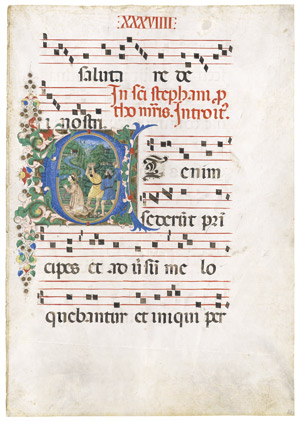 XXXVIIII
saluta re de
In scī stephani ꝓ
tho mr̄is. Introit᷒
i nostri
E T enim
sederūt prī
cipes et aduˀsū me lo
quebantur et iniqui per